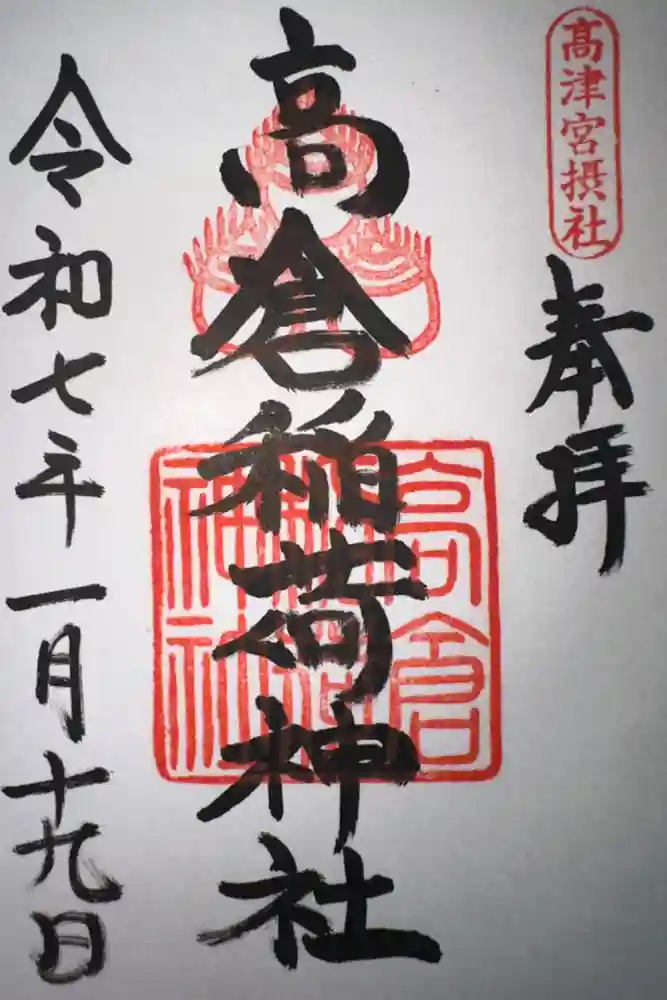 高津宮摂社
奉拝
高倉稲荷神社
高倉
稲荷
神社
令和七年一月十九日